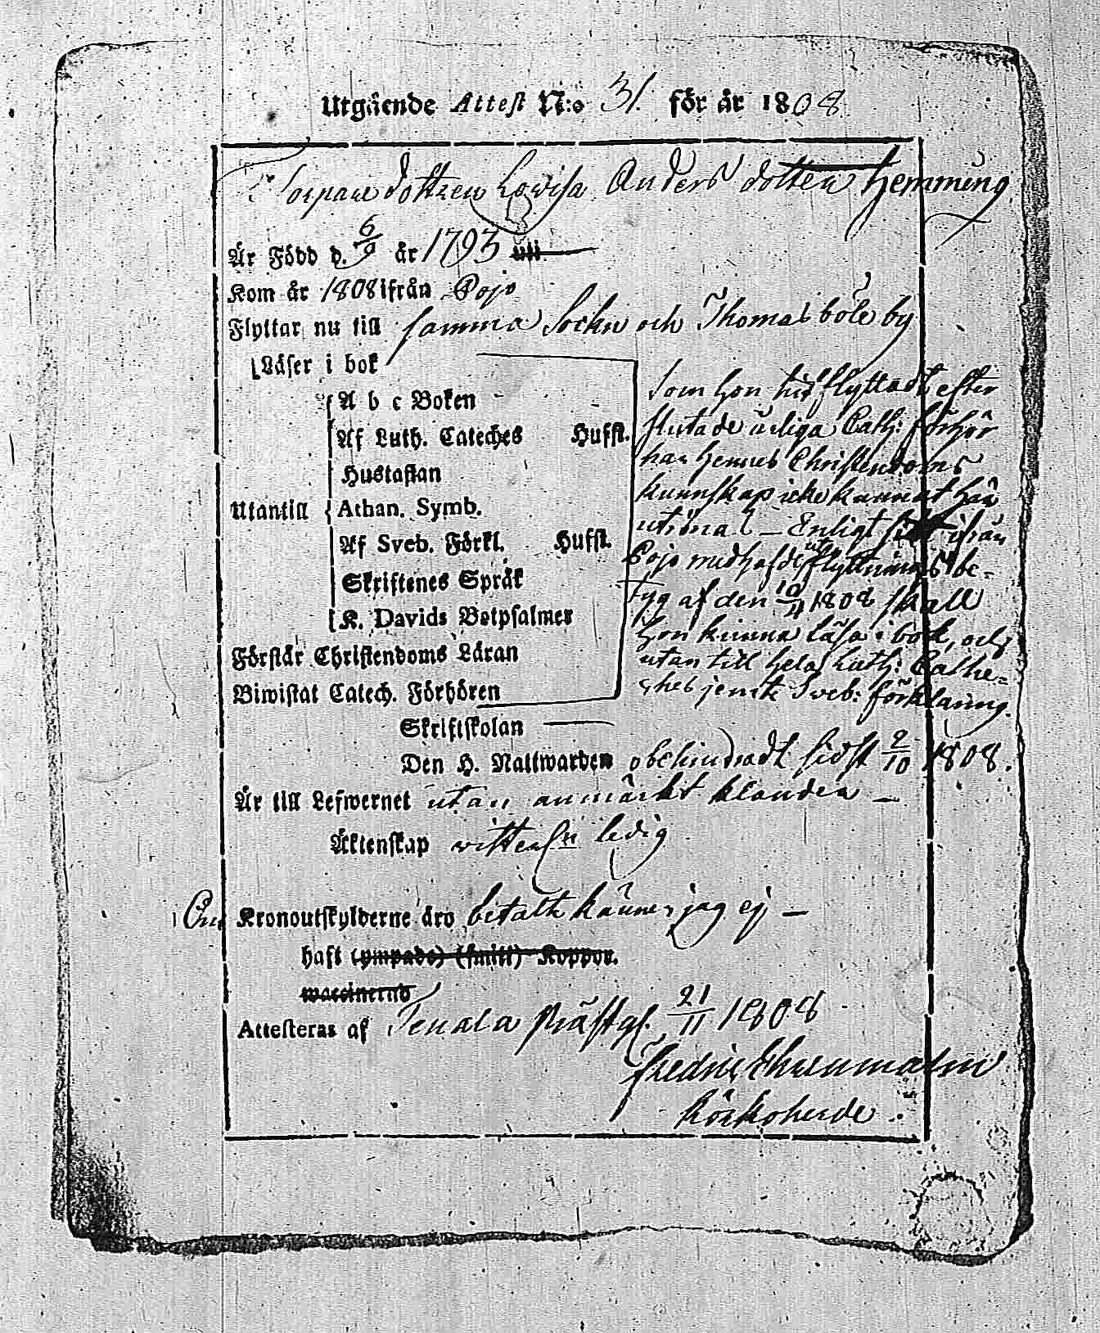 Utgående Attest N:o 31. för år 1808
Torpare dottren Lovisa Anders dotter Hemming
Är Född d. 6/9 år 1793 till
Kom år 1808 ifrån Pojo
Flyttar nu till samma Sockn och Thomasböle by
Läser i bok
A b c Boken
Af Luth. Cateches Husst.
Hustaflan
Utantill Athan. Symb.
Af Sveb. Förkl. Husst.
Skriftenes Språk
K. Davids Botpsalmer
Förstår Christendoms Läran
Biwistat Catech. Förhören
Som hon hit flyttadt efter
slutade årliga Cath: förhör
har hennes Christendoms
kunnskap icke kunnat här
utrönas – Enligt ifrån
Pojo medhafde flyttnings be-
tyg af den 10/11 1808 skall
hon kunna läsa i bok, och
utan till hela Luth: Cathe-
ches jemte Sveb: förklaring.
Skriftskolan —
Den H. Nattwarden obehindradt sidst 2/10 1808.
Är till Lefwernet utan anmärkt klander –
Äktenskap witterl. ledig
Om Kronoutskylderne äro betalte känner jag ej –
haft (ympade) (smitt) Koppor.
waccinerad
Attesteras af Tenala Prästg. 21/11 1808
Fredric Ehrenmalm
Kyrkoherde.